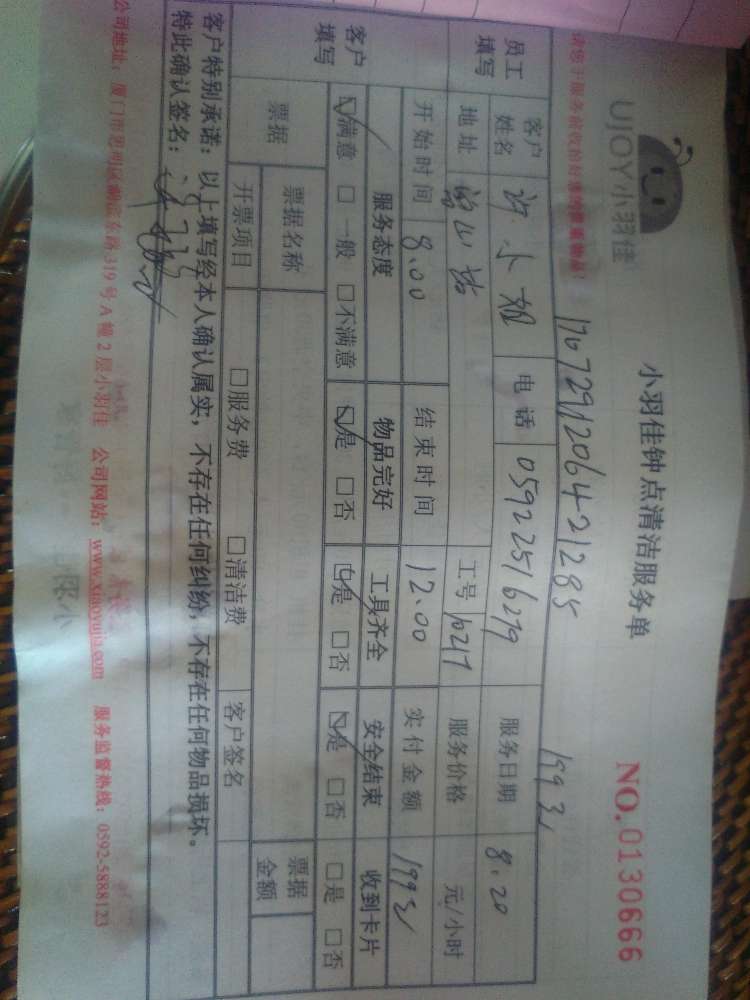 UJOY小羽佳
小羽佳钟点清洁服务单
NO.0130666
请您于服务前收拾好您的贵重物品！
1707291206421285
199元
员工填写
客户姓名 许小姐 电话 05922516279 服务日期 8.20
地址 工号 10217 服务价格 元/小时
开始时间 8.00 结束时间 12.00 实付金额 199元
客户填写
服务态度 物品完好 工具齐全 安全结束 收到卡片
☑满意 □一般 □不满意 ☑是 □否 ☑是 □否 ☑是 □否 □是 □否
票据 票据名称 票据金额
开票项目 □服务费 □清洁费 客户签名
客户特别承诺：以上填写经本人确认属实，不存在任何纠纷，不存在任何物品损坏。
特此确认签名：
公司地址：厦门市思明区 东路319号A幢2层小羽佳 公司网站：www.xiaoyujia.com 服务监督热线：0592-5888123